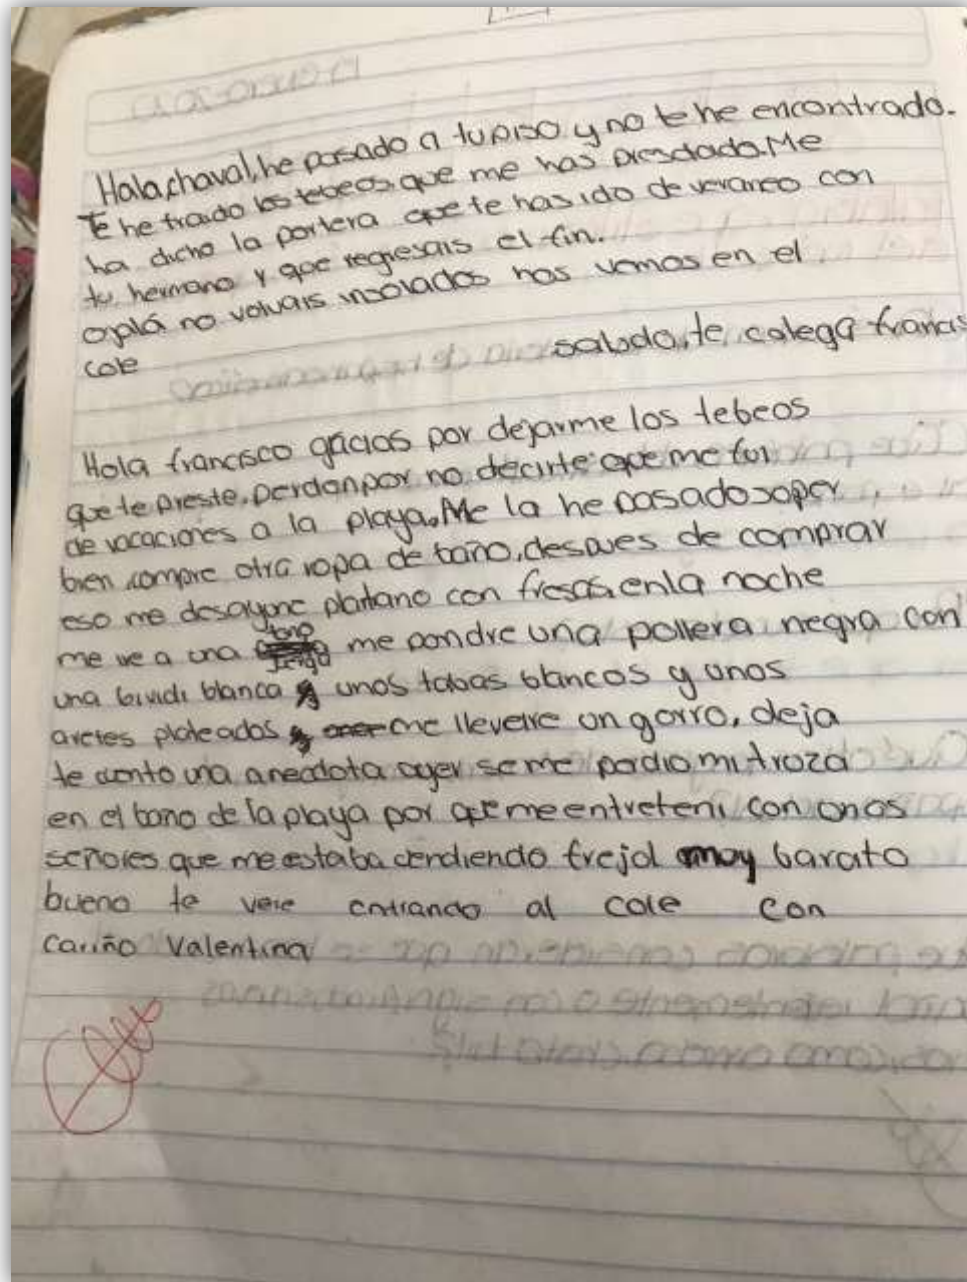 Hola,chaval,he pasado a tu piso y no te he encontrado.
Te he traido los tebeos que me has prestado.Me
ha dicho la portera que te has ido de veraneo con
tu hermano y que regresais el fin.
ojalá no volvais insolados nos vemos en el
cole
saludo, te colega francis
Hola francisco gracias por dejarme los tebeos
que te preste, perdon por no decirte que me fui
de vacaciones a la playa. Me la he pasado super
bien compre otra ropa de baño, despues de comprar
eso me desayune platano con fresas, en la noche
me ve a una tono me pondre una pollera negra con
una bividi blanca y unos tabas blancos y unos
aretes plateados y me llevere un gorro, deja
te conto una anecdota ayer se me perdio mi troza
en el baño de la playa por que me entreteni con unos
señores que me estaba vendiendo frejol muy barato
bueno te vere entrando al cole con
cariño Valentina